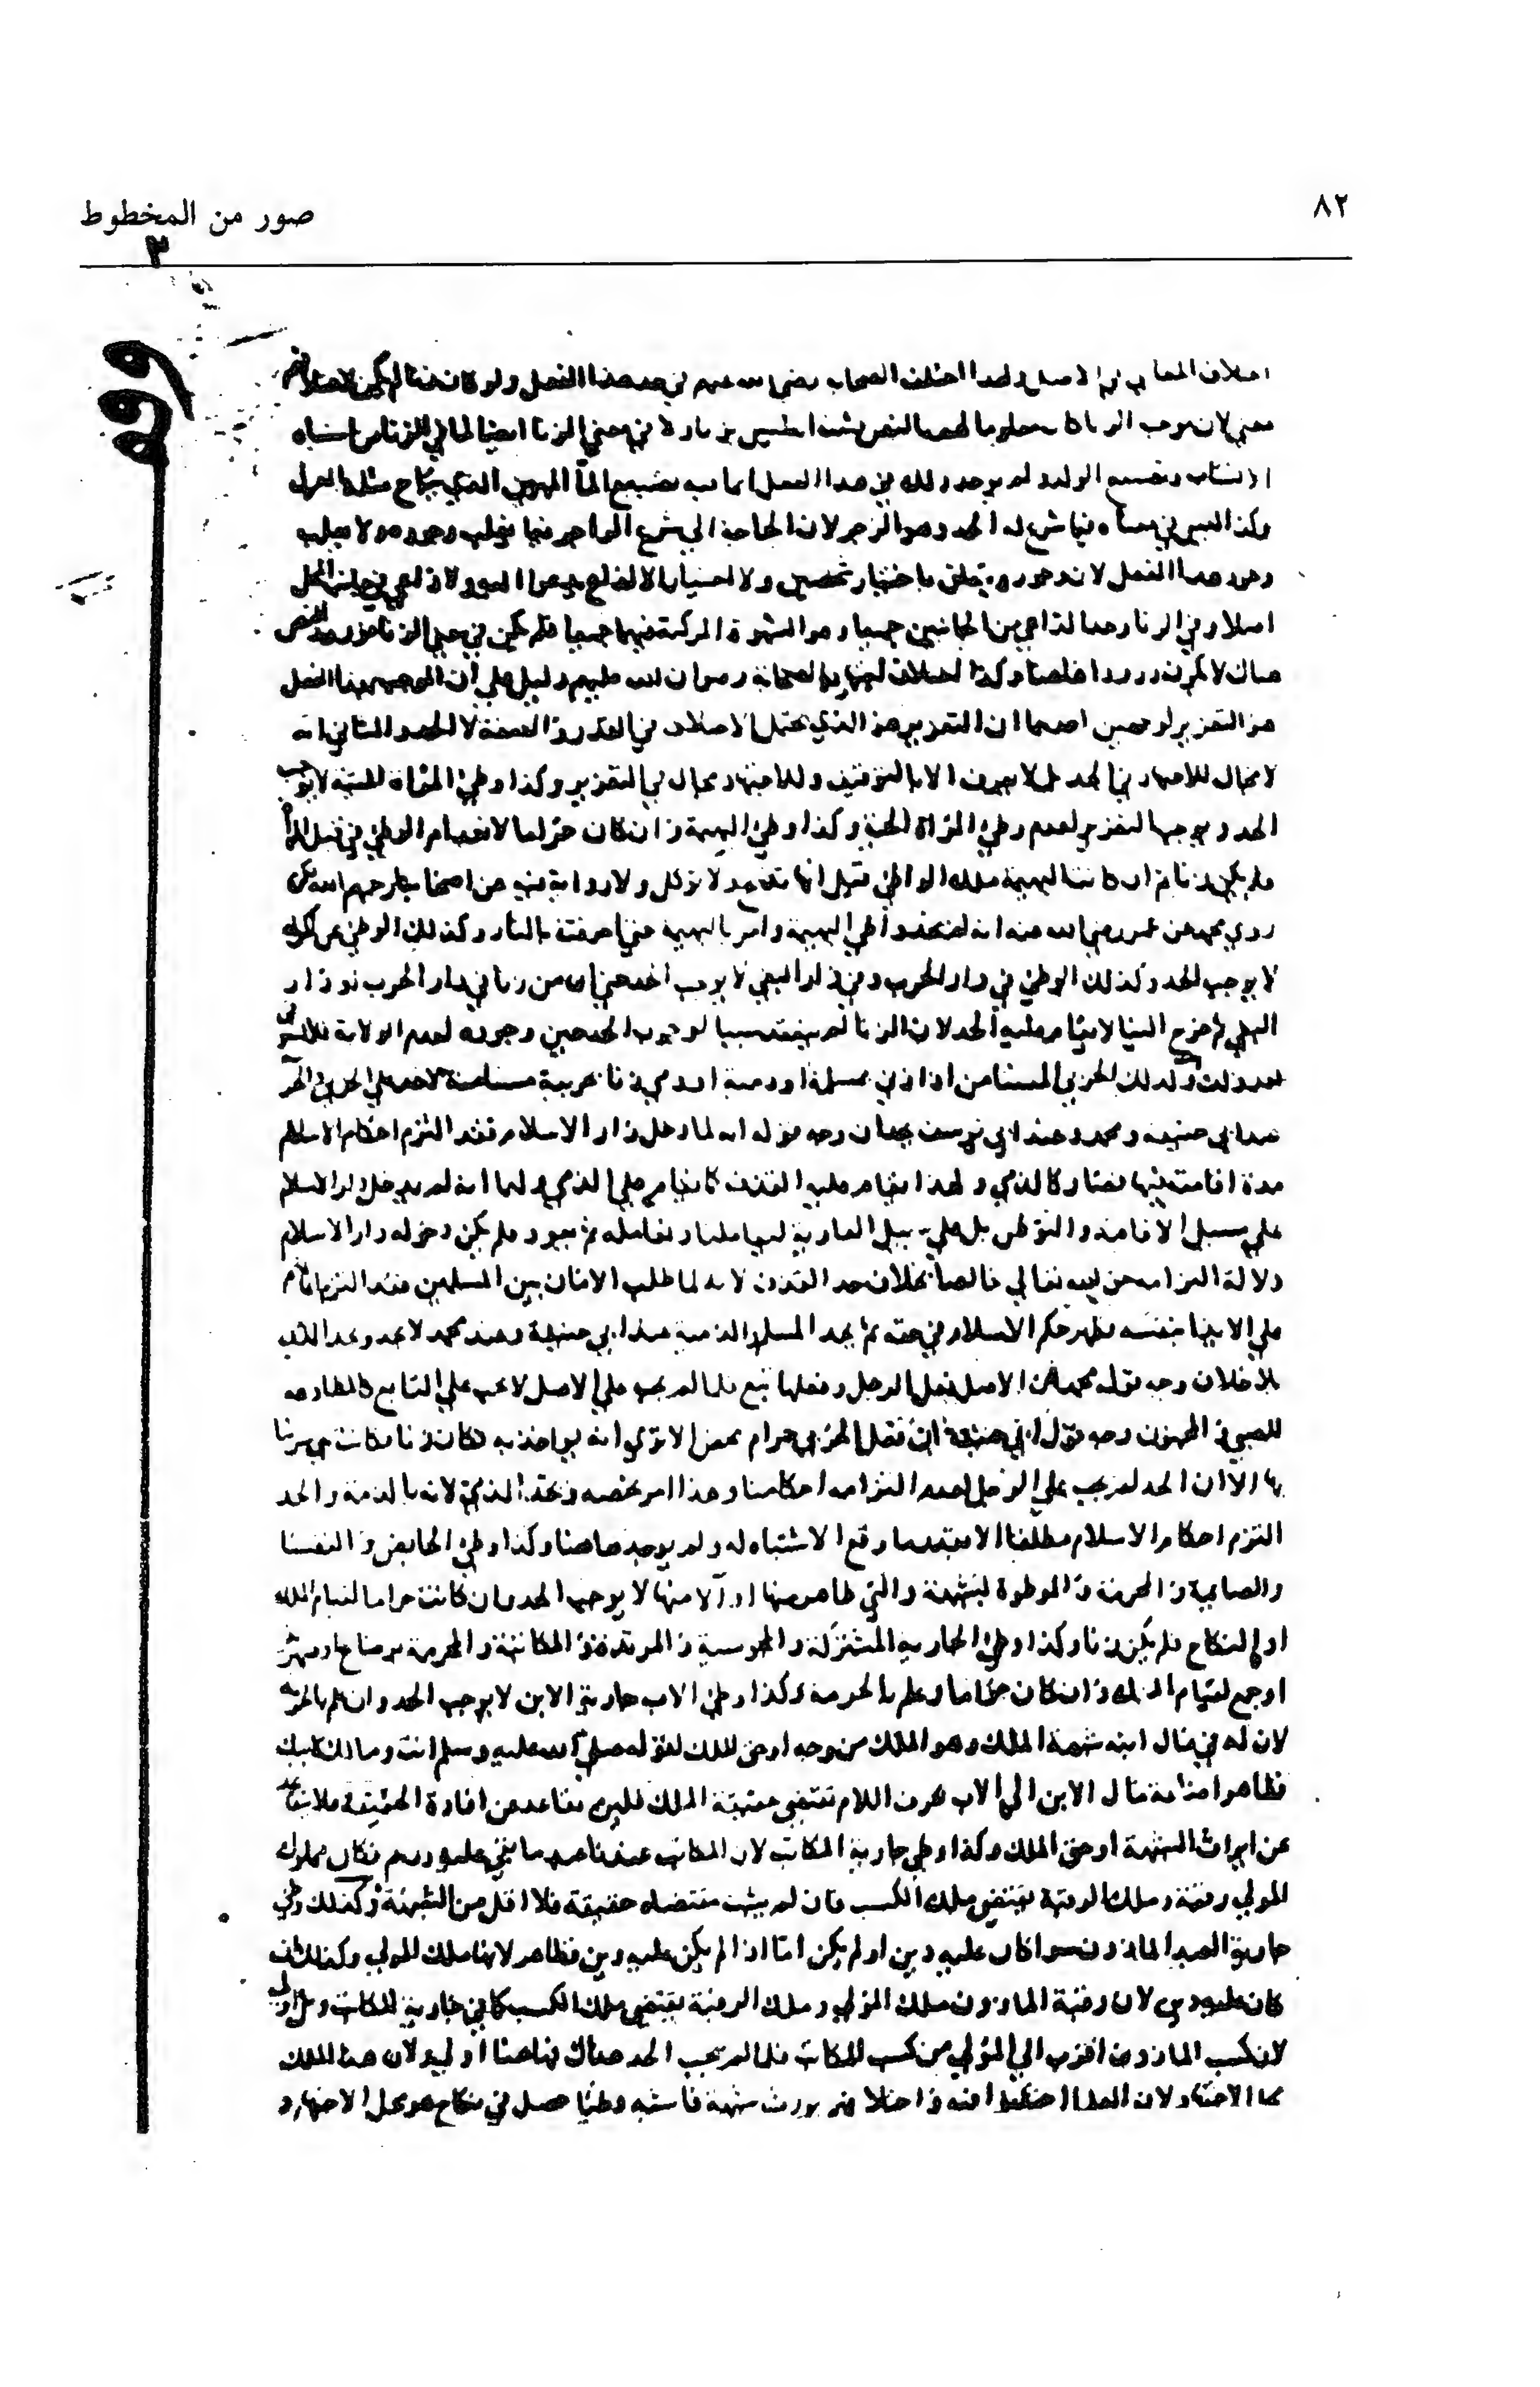 ٨٢
صور من المخطوط
٣
وقف
اختلاف المعاني في الاصل ولهذا اختلف الصحابة رضي الله عنهم في حد هذا الفعل ولو كان هذا لم يكن لاختلافهم
معني لان موجب الزنا كان معلوما لهم بالنص فثبت انه ليس بزنا ولا في معني الزنا ايضا لما في الزنا من اشتباه
الانساب وتضييع الولد ولم يوجد ذلك في هذا الفعل انما فيه تضييع الماء المهين الذي يباح مثله بالعزل
وكذا ليس في معناه فيما شرع له الحد وهو الزجر لان الحاجة الي شرع الزاجر فيما يغلب وجوده ولا يغلب
وجود هذا الفعل لان وجوده يتعلق باختيار شخصين ولا اختيار الا لداع يدعو اليه ولا داعي في جانب المحل
اصلا وفي الزنا وجد الداعي من الجانبين جميعا وهو الشهوة المركبة فيهما جميعا فلم يكن في معني الزنا فورود النص
هناك لا يكون ورودا هاهنا وكذا اختلاف اجتهاد الصحابة رضوان الله عليهم دليل علي أن الموجب بهذا الفعل
هو التعزير لوجهين احدهما ان التعزير هو الذي يحتمل الاختلاف في القدر والصفة لا الحد والثاني انه
لا مجال للاجتهاد في الحد بل لا يعرف الا بالتوقيف وللاجتهاد مجال في التعزير وكذا وطئ المرأة الميتة لا يوجب
الحد ويوجب التعزير لعدم وطئ المرأة الحية وكذا وطئ البهيمة وان كان حراما لانعدام الوطئ في قبل المرأة
فلم يكن زنا ثم ان كانت البهيمة ملك الواطئ قيل انها تذبح ولا تؤكل ولا رواية فيه عن اصحابنا رحمهم الله لكن
روي محمد عن عمر رضي الله عنه انه لم يحد واطئ البهيمة وامر بالبهيمة حتي احرقت بالنار وكذلك الوطئ عن اكراه
لا يوجب الحد وكذلك الوطئ في دار الحرب وفي دار البغي لا يوجب الحد حتي ان من زنا في دار الحرب او دار
البغي ثم خرج الينا لا يقام عليه الحد لان الزنا لم ينعقد سببا لوجوب الحد حين وجوده لعدم الولاية فلا يستوفي
بعد ذلك وكذلك الحربي المستامن اذا زني بمسلمة او ذمية او ذمي زنا بحربية مستامنة لا حد علي الحربي والحربية
عند ابي حنيفة ومحمد وعند ابي يوسف يحدان وجه قوله انه لما دخل دار الاسلام فقد التزم احكام الاسلام
مدة اقامته فيها فصار كالذمي ولهذا يقام عليه حد القذف كما يقام علي الذمي ولهما انه لم يدخل دار الاسلام
علي سبيل الاقامة والتوطن بل علي سبيل العارية ليعاملنا ونعامله ثم يعود فلم يكن دخوله دار الاسلام
دلالة التزامه حق الله تعالي خالصا بخلاف حد القذف لانه لما طلب الامان من المسلمين فقد التزم امانهم
عن الايذاء بنفسه فظهر حكم الاسلام في حقه ثم يحد المسلم والذمية عند ابي حنيفة وعند محمد لا تحد وتحد الذمية
بلا خلاف وجه قول محمد ان الاصل فعل الرجل وفعلها تبع فلما لم يجب علي الاصل لا يجب علي التابع كالمطاوعة
للصبي والمجنون وجه قول ابي حنيفة ان فعل الحربي حرام محض الا تري انه يواخذ به فكان زنا فكانت هي مزنيا
بها الا ان الحد لم يجب علي الرجل لعدم التزامه احكامنا وهذا امر يخصه وبحد الذمي لانه بالذمة والعهد
التزم احكام الاسلام مطلقا الا بقدر ما وقع الاشتباه له ولم يوجد هاهنا وكذا وطئ الحائض والنفساء
والصايمة والمحرمة والموطوة بشبهة والتي ظاهر منها او آلا منها لا يوجب الحد وان كانت حراما لقيام الملك
او النكاح فلم يكن زنا وكذا وطئ الجارية المشتركة والمجوسية والمرتدة والمكاتبة والمحرمة برضاع او صهر
او جمع لقيام الملك وان كان حراما وعلم بالحرمة وكذا وطئ الاب جارية الابن لا يوجب الحد وان علم بالحرمة
لان له في مال ابنه شبهة الملك وهو الملك من وجه او حق الملك لقوله صلي الله عليه وسلم انت ومالك لابيك
فظاهر اضافة مال الابن الي الاب بحرف اللام تقتضي حقيقة الملك فلئن تقاعد عن افادة الحقيقة فلا يتقاعد
عن ايراث الشبهة او حق الملك وكذا وطئ جارية المكاتب لان المكاتب عندنا عبد ما بقي عليه درهم فكان مملوك
المولي رقبة وملك الرقبة يقتضي ملك الكسب فان لم يثبت مقتضاه حقيقة فلا اقل من الشبهة وكذلك وطئ
جارية العبد الماذون سوا كان عليه دين او لم يكن اما اذا لم يكن عليه دين فظاهر لانها ملك المولي وكذلك ان
كان عليه دين لان رقبة الماذون ملك المولي وملك الرقبة يقتضي ملك الكسب كما في جارية المكاتب وبل اولي
لان كسب الماذون اقرب الي المولي من كسب المكاتب فلما لم يجب الحد هناك فهاهنا اولي ولان هذا الملك
محل الاجتهاد لان العلما اختلفوا فيه واختلافهم يورث شبهة فاشبه وطئا حصل في نكاح هو محل الاجتهاد و